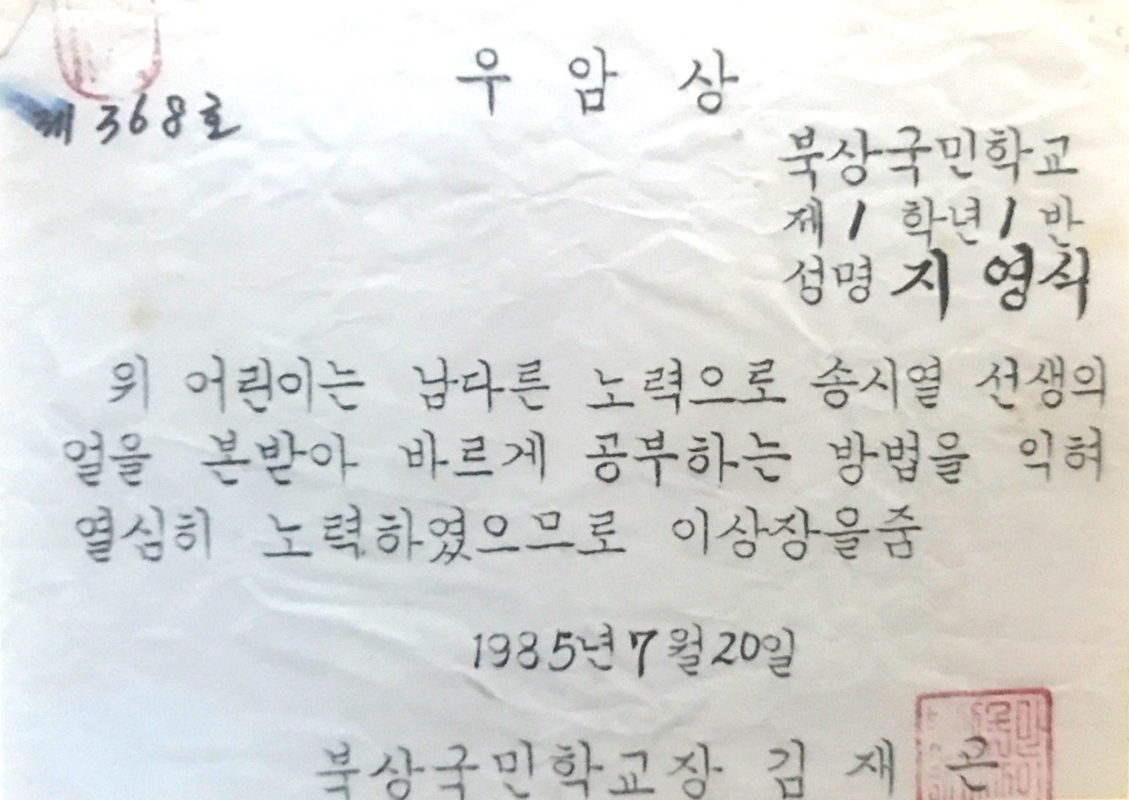 우 암 상
제 368호
북상국민학교
제 1 학년 1 반
성명 지 영식
위 어린이는 남다른 노력으로 송시열 선생의
얼을 본받아 바르게 공부하는 방법을 익혀
열심히 노력하였으므로 이상장을줌
1985년 7월 20일
북상국민학교장 김 재 은